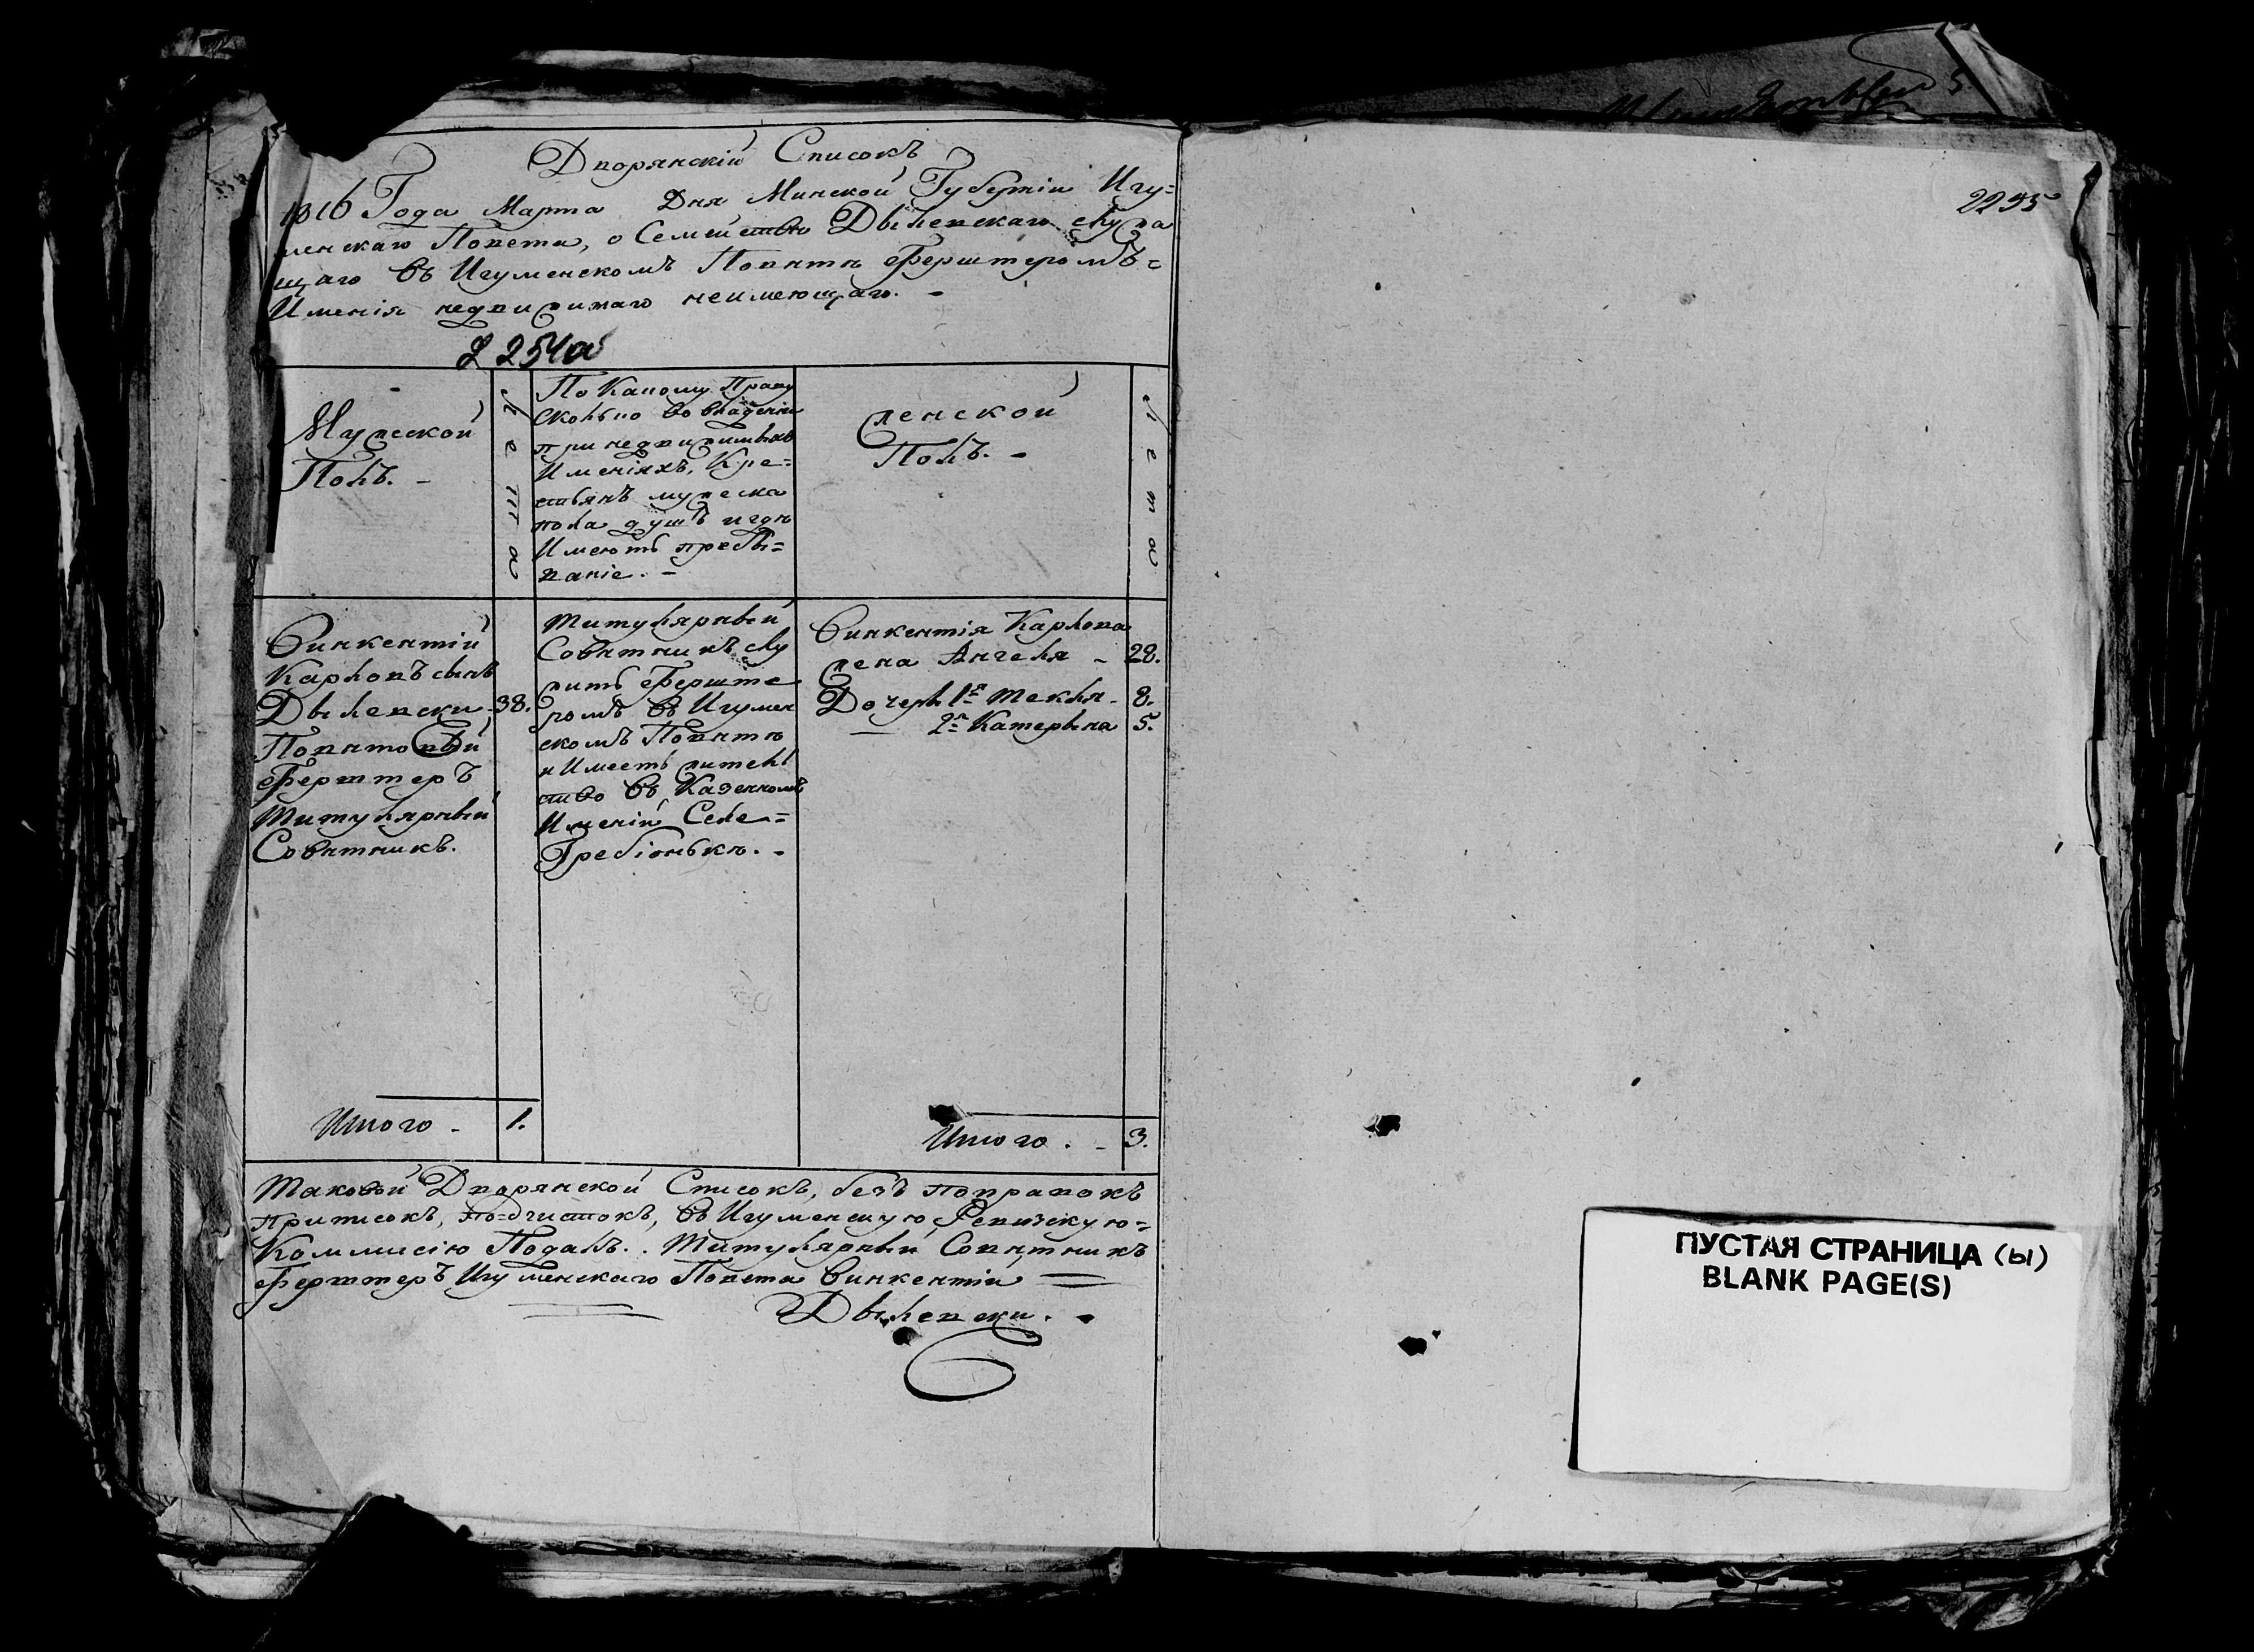 Дворянскій Списокъ
1816 Года Марта Дня Минской Губерніи Игу=
менскаго Повета, о Семействѣ Дылевскаго служа
щаго въ Игуменскомъ Поветѣ Ферштеромъ=
Именія недвижимаго неимеющаго. -
2254
Мужеской
Полъ. -
Лета
По Какому Праву
сколько во владеніи
при недвижимыхъ
Именіяхъ, Кре=
стьянъ мужеска
пола душъ и где
Имеютъ пребы=
ваніе. -
женской
Полъ. -
Лета
Винкентій
Карловъ сынъ
Дылевски 38.
Поветовый
Ферштеръ
Титулярный
Советникъ.
Титулярный
Советникъ слу
житъ Ферште
ромъ въ Игумен
скомъ Поветѣ
и Имеетъ житель
ство въ Казенномъ
Именіи Селе=
Гребіонькѣ. -
Винкентія Карлова
жена Ангеля - 28.
Дочери 1я Текля - 8.
2я Катерына 5.
Итого - 1.
Итого. - 3.
Таковой Дворянской Списокъ, безъ поправокъ
приписокъ, подчистокъ, въ Игуменскую Ревизскую=
Коммисію Подалъ. Титулярный Советникъ
Ферштеръ Игуменскаго Повета Винкентій
Дылевски. -
2295
ПУСТАЯ СТРАНИЦА (Ы)
BLANK PAGE(S)